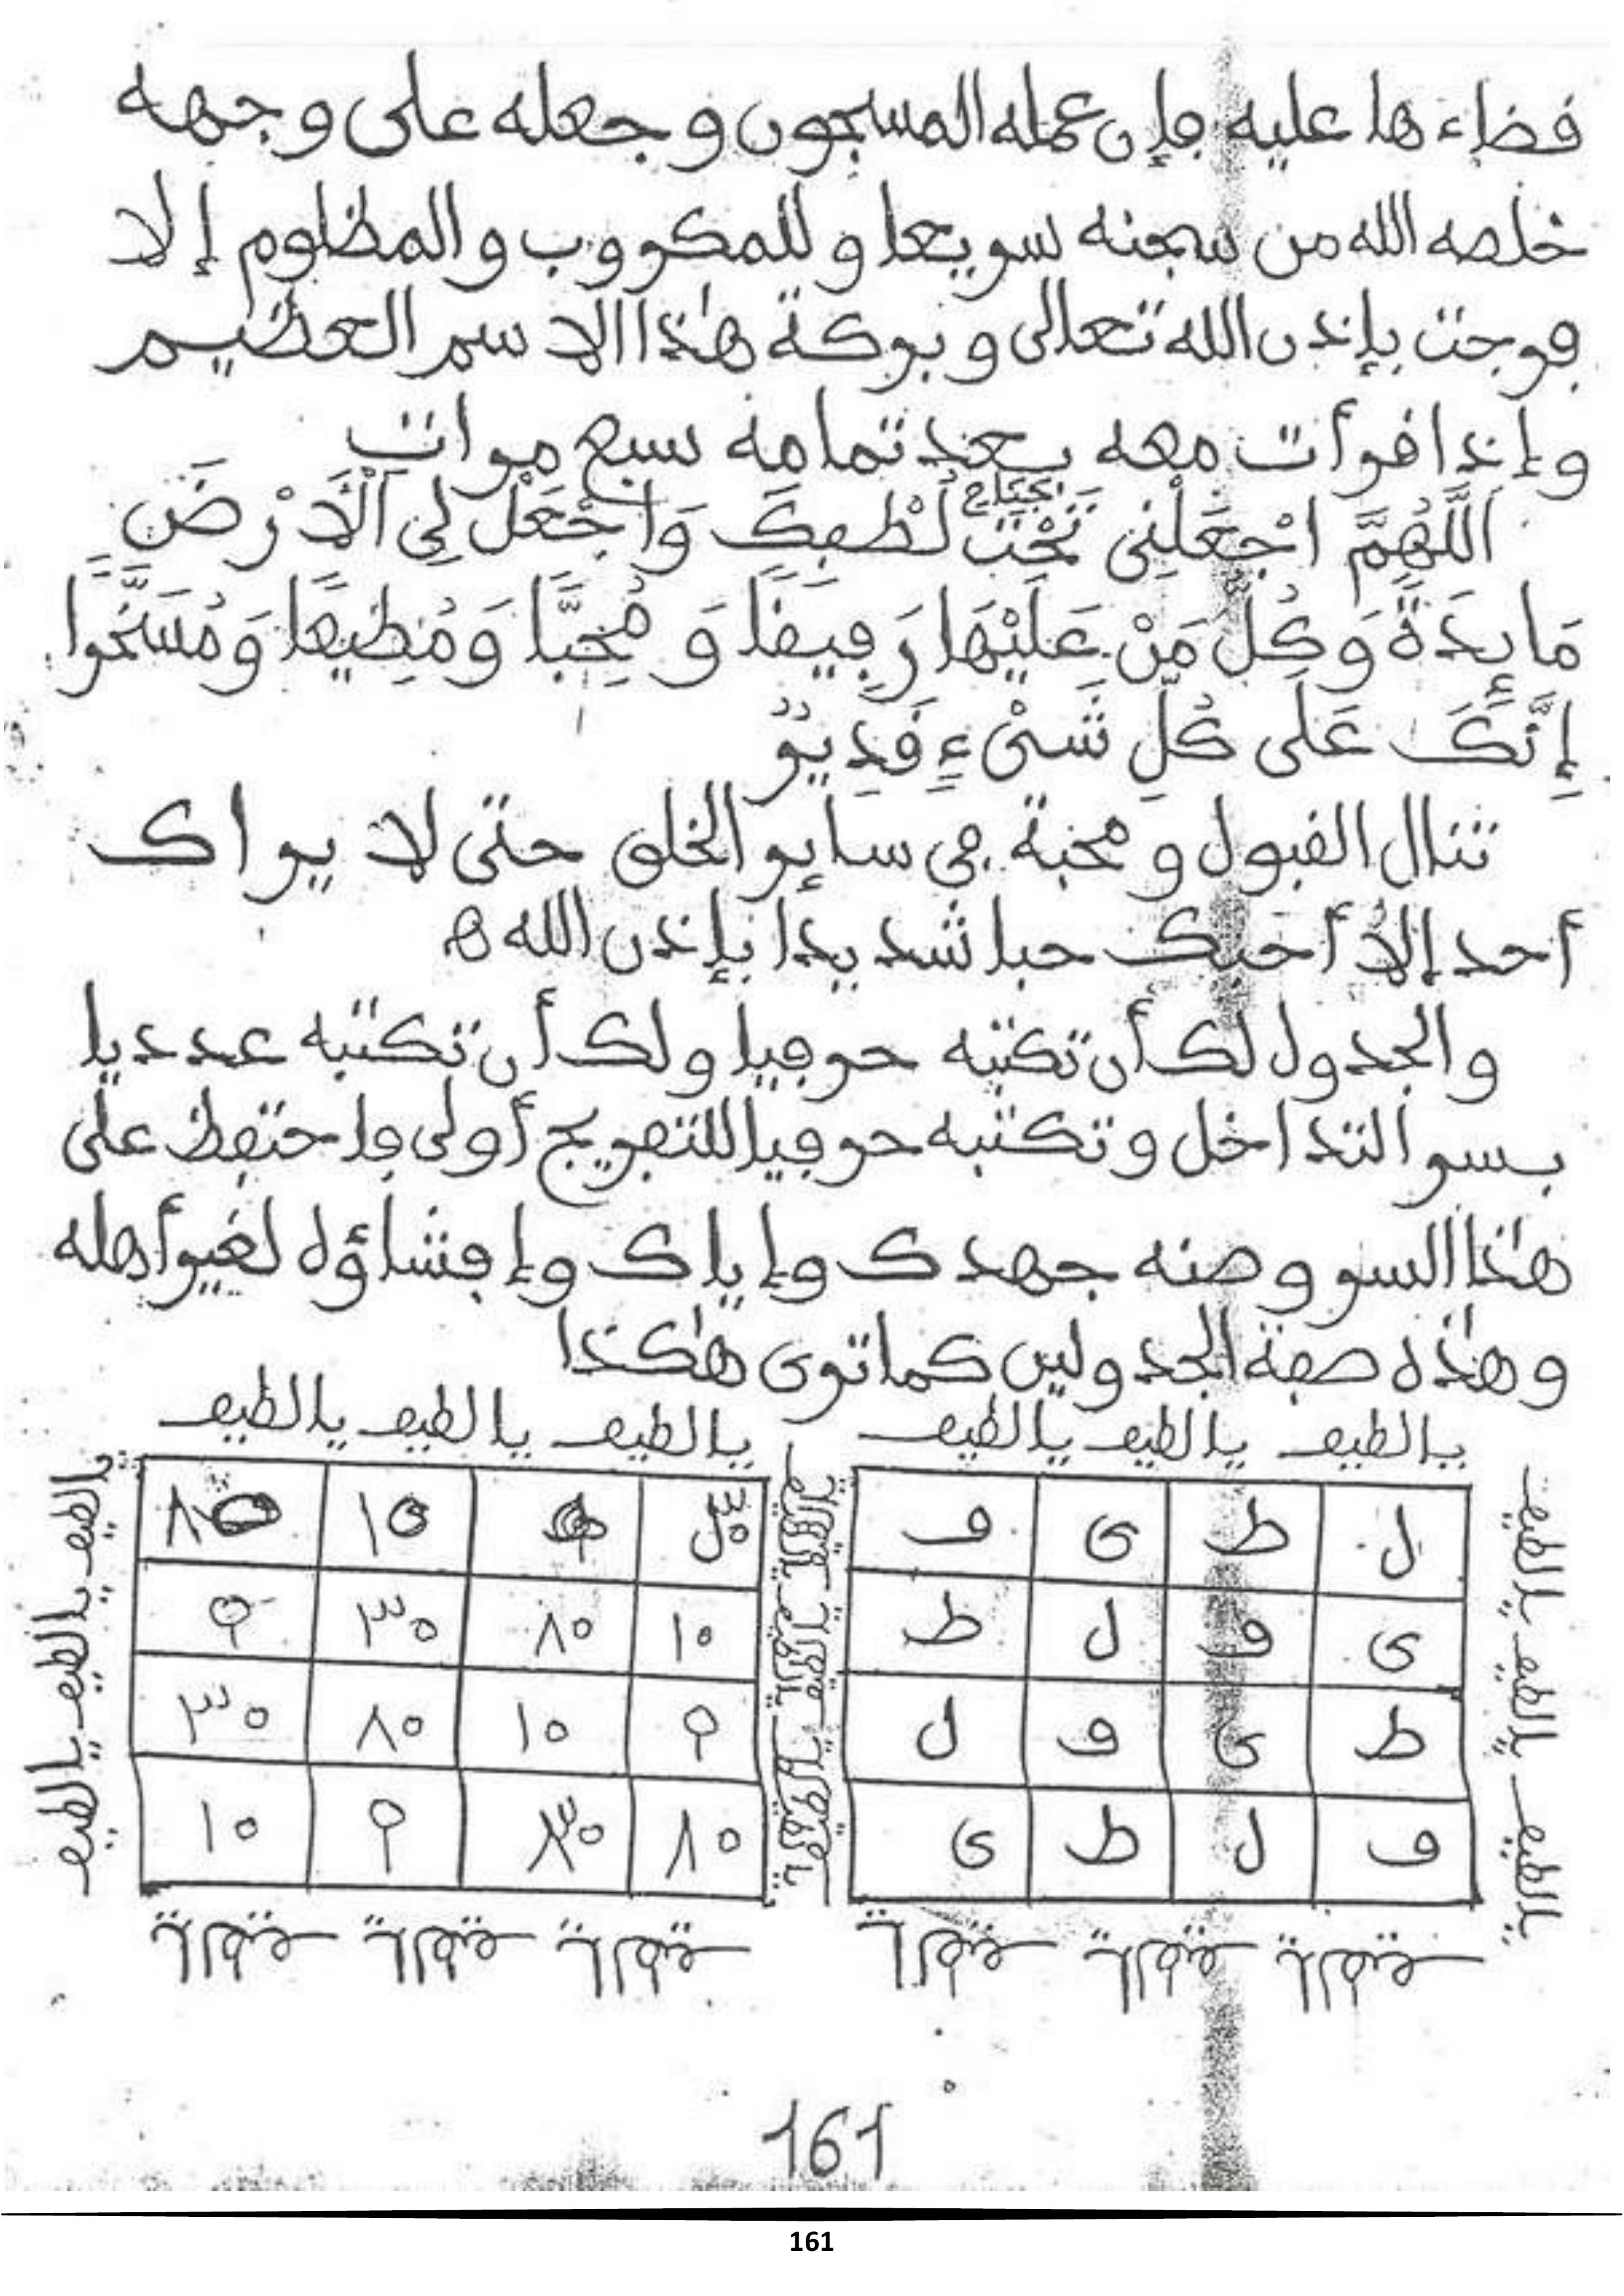 قضاءها عليه فإن عمله المسجون وجعله على وجهه
خلصه الله من سجنه سريعا وللمكروب والمظلوم إلا
فرجت بإذن الله تعالى وبركة هذا الاسم العظيم
وإذا قرأت معه بعد تمامه سبع مرات
اللَّهُمَّ اجْعَلْنِي تَحْتَ جَنَاحِ لُطْفِكَ وَاجْعَلْ لِي الْأَرْضَ
مَائِدَةً وَكُلَّ مَنْ عَلَيْهَا رَفِيقًا وَمُحِبًّا وَمُطِيعًا وَمُسَخَّرًا
إِنَّكَ عَلَى كُلِّ شَيْءٍ قَدِيرٌ
تنال القبول ومحبة في سائر الخلق حتى لا يراك
أحد إلا أحبك حبا شديدا بإذن الله ه
والجدول لك أن تكتبه حرفيا ولك أن تكتبه عدديا
بسر التداخل وتكتبه حرفيا للتفريج أولى فاحتفظ على
هذا السر وصنه جهدك وإياك وإفشاؤه لغير أهله
وهذه صفة الجدولين كما ترى هكذا
يا لطيف يا لطيف يا لطيف يا لطيف يا لطيف يا لطيف
ل ط ى ف
ى ف ل ط
ط ى ف ل
ف ل ط ى
٣٠ ٩ ١٠ ٨٠
١٠ ٨٠ ٣٠ ٩
٩ ١٠ ٨٠ ٣٠
٨٠ ٣٠ ٩ ١٠
يا لطيف يا لطيف يا لطيف
يا لطيف يا لطيف يا لطيف
يا لطيف يا لطيف يا لطيف
يا لطيف يا لطيف يا لطيف يا لطيف يا لطيف يا لطيف
161
161